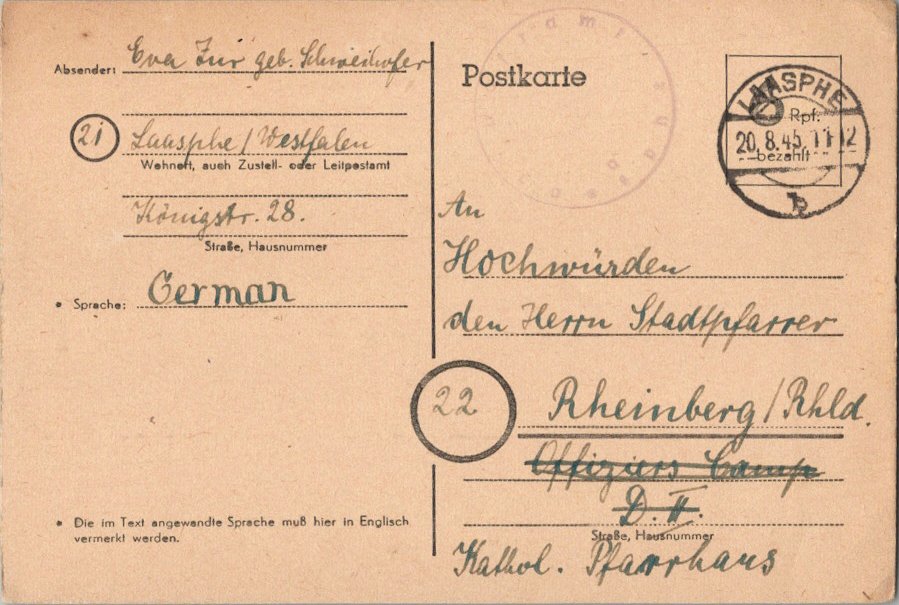 Absender: Eva Zur geb. Schweihofer
21
Laasphe/Westfalen
Wohnort, auch Zustell- oder Leitpostamt
Königstr. 28.
Straße, Hausnummer
* Sprache: German
* Die im Text angewandte Sprache muß hier in Englisch
vermerkt werden.
Postkarte
LAASPHE
Rpf.
20.8.45. 11-12
bezahlt
b
An
Hochwürden
den Herrn Stadtpfarrer
22
Rheinberg/Rhld.
Offiziers Camp
D. II.
Straße, Hausnummer
Kathol. Pfarrhaus